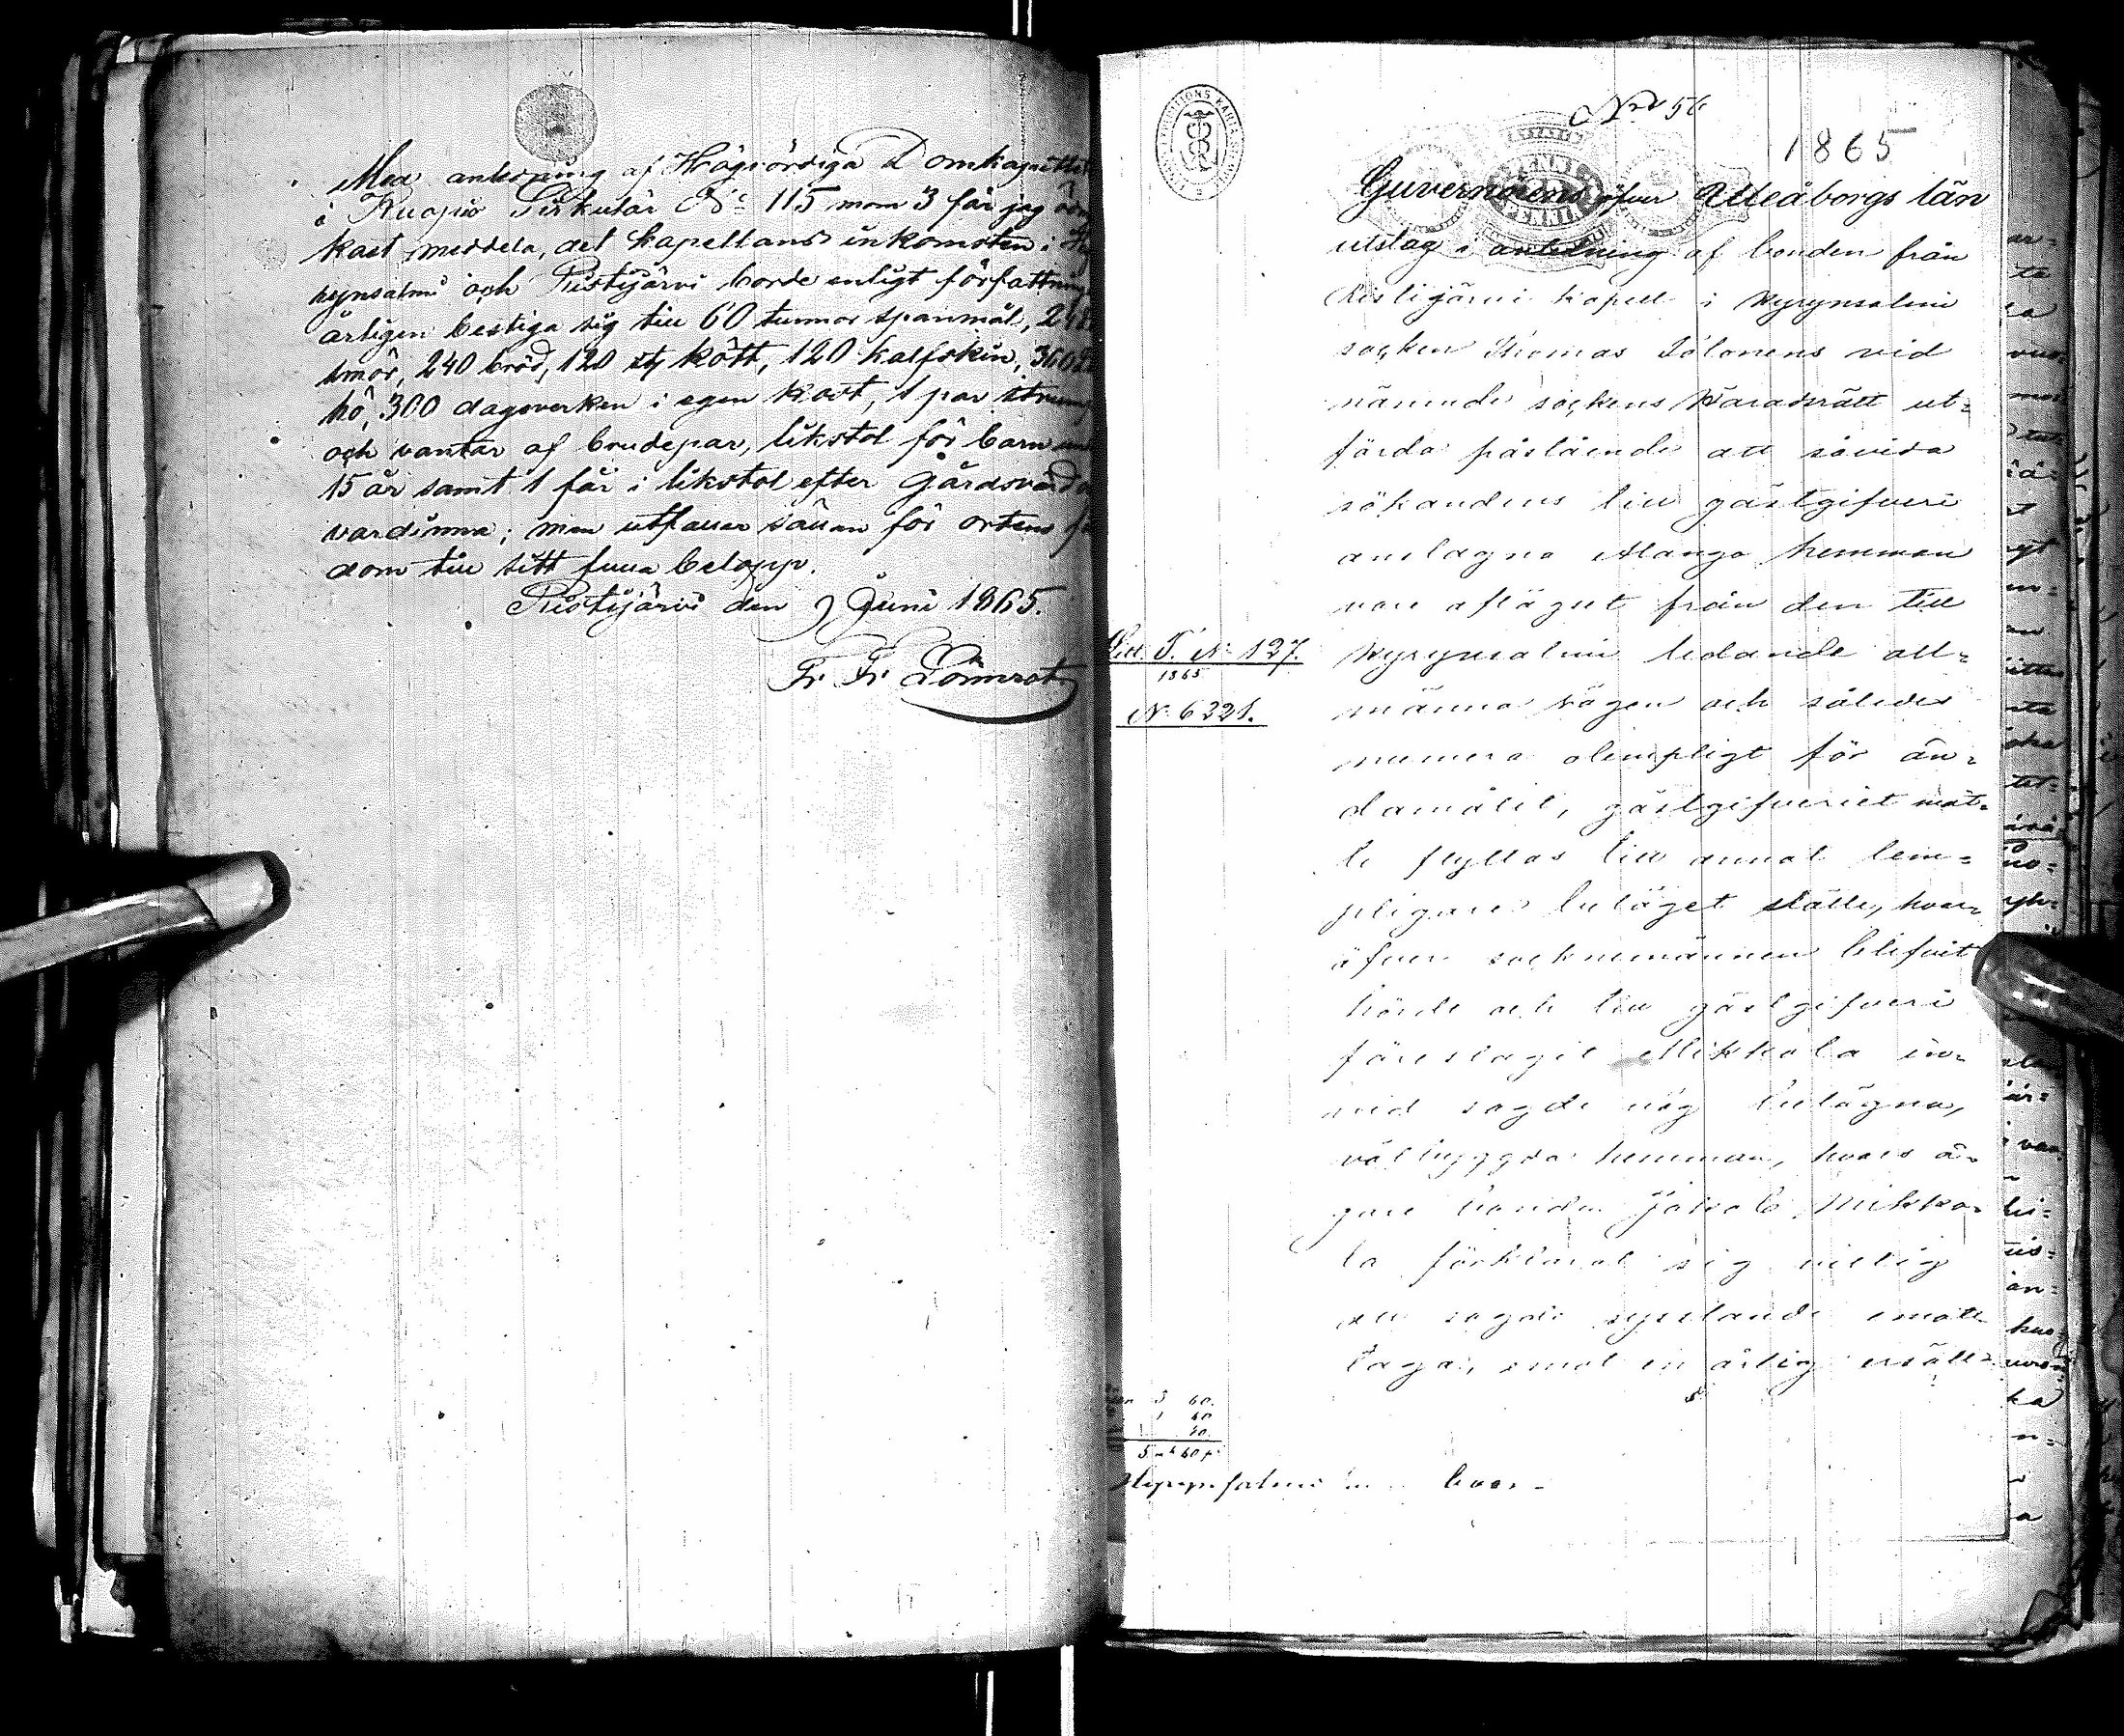 Med anledning af Högvördiga Domkapitlet
i Kuopio Cirkulär No 115 mom 3 får jag öd
kast meddela, det kapellans inkomsten i Hy
rynsalmi och Ristijärvi borde enligt författning
årligen bestiga sig till 60 tunnor spanmål, 24
smör, 240 bröd, 120 kött, 120 kalfskin, 360
hö, 300 dagsverken i egen kost, 1 par strum
och vantar af brudepar, likstol för barn und
15 år samt 1 får i likstol efter Gårdsvärd o
värdinna; men utfaller sällan för ortens
dom till sitt fulla belopp.
Ristijärvi den 9 Juni 1865.
Fr. Fr. Lönnrot
Nro 56
1865
Guvernörens öfver Uleåborgs län
utslag i anledning af bonden från
Ristijärvi kapell i Hyrynsalmi
socken Thomas Tolonens vid
nämnde sockens Häradsrätt ut=
förda påstående att såvida
sökandens till gästgifveri
anslagna Alanga hemman
vore aflägset från den till
Hyrynsalmi ledande all=
männa vägen och således
numera olämpligt för än=
damålet, gästgifveriet måt=
te flyttas till annat läm=
pligare beläget ställe, hvar=
öfver socknemännen blifvit
hörde och till gästgifveri
föreslagit Mikkola in=
vid sagde väg belägna,
välbyggda hemman, hvars ä=
gare bonden Jakob Mikko=
la förklarat sig villig
att sagde syssland emot=
taga, emot en årlig ersätt=
Litt. T. No 127.
1865
No 6221.
3 60.
1 40
60.
5 mk 60 p.
Hyrynsalmi